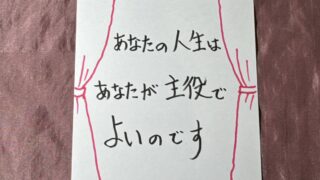 あなたの人生は
あなたが主役で
よいのです